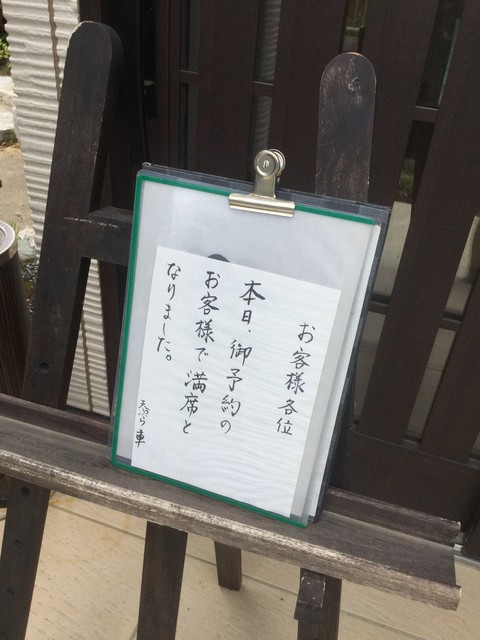 お客様各位
本日、御予約の
お客様で満席と
なりました。
天ぷら 車